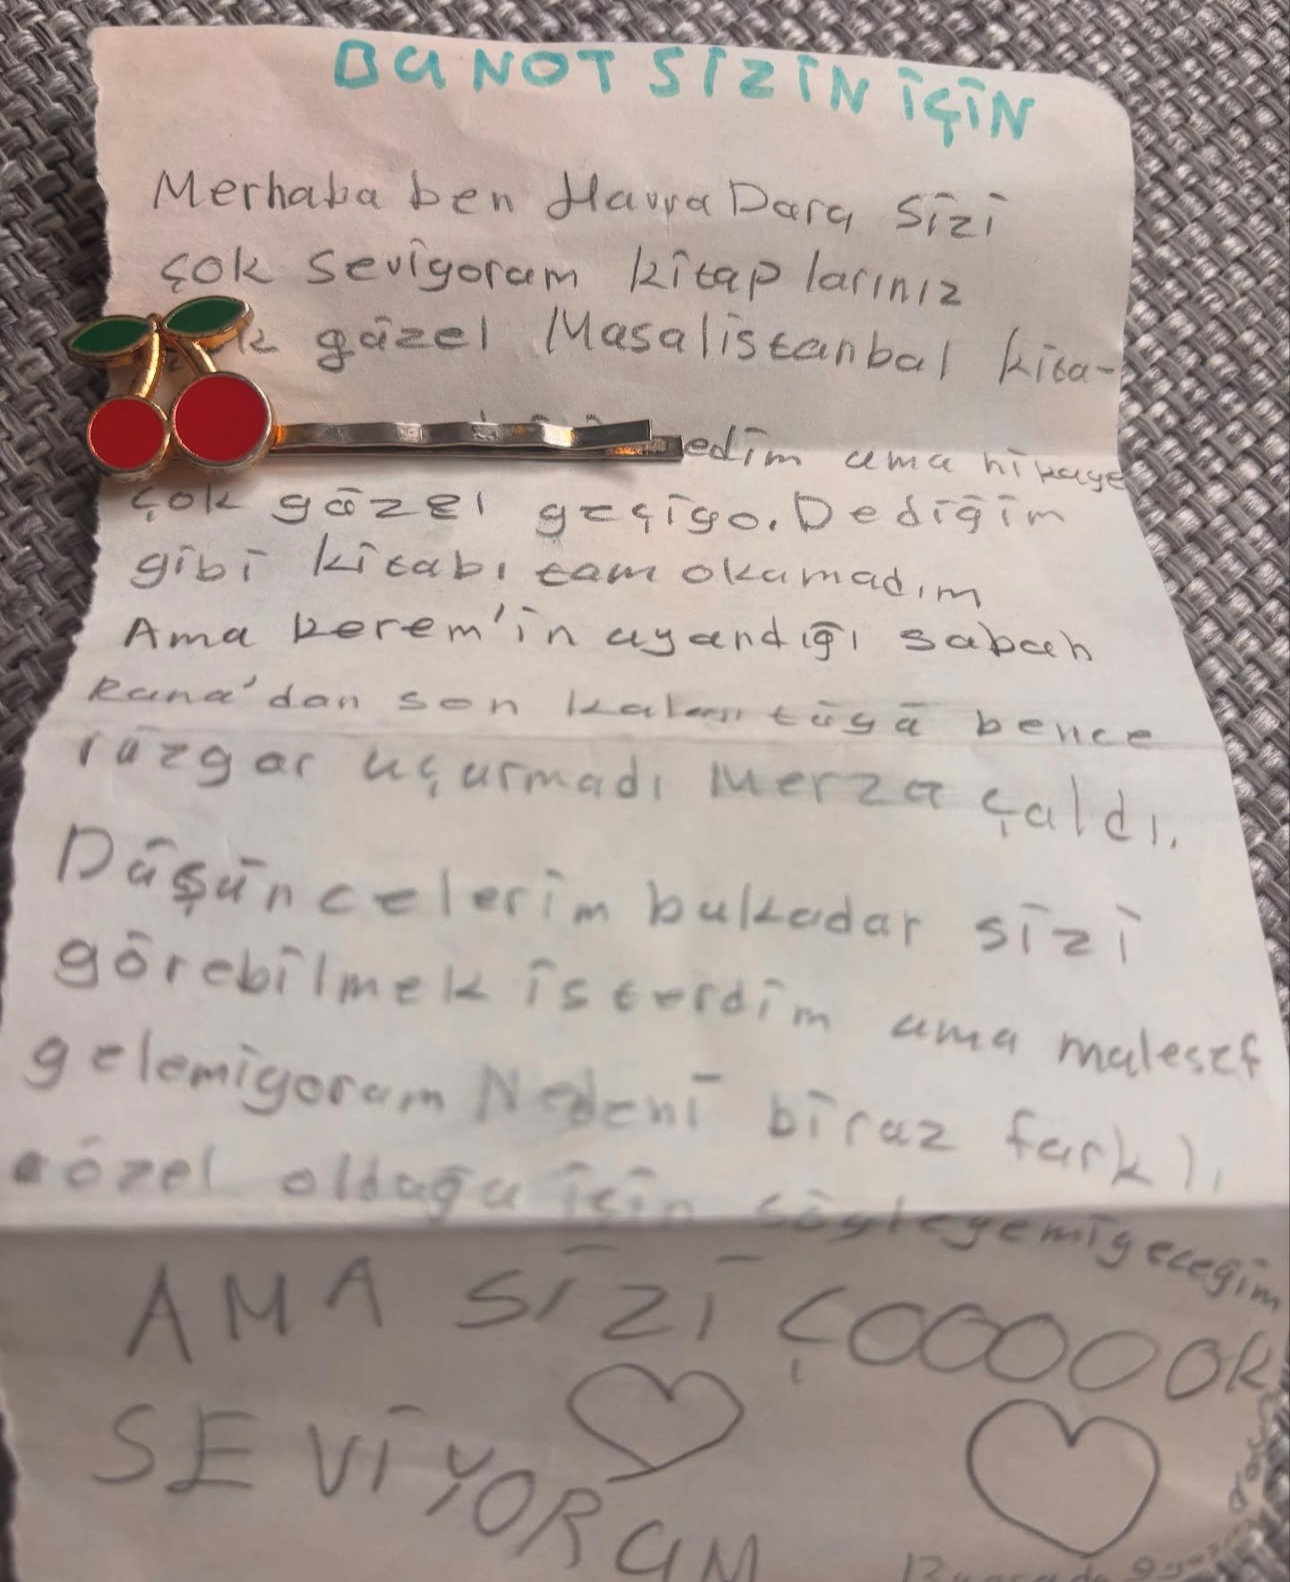 BU NOT SİZİN İÇİN
Merhaba ben Havva Dara sizi
çok seviyorum kitap larınız
güzel Masalistanbul kita-
edim ama hikaye
çok güzel geçiyo. Dediğim
gibi kitabı tam okumadım
Ama kerem'in uyandığı sabah
Rana'dan son kalan tüyü bence
rüzgar uçurmadı Merza çaldı.
Düşüncelerim bukadar sizi
görebilmek isterdim ama malesef
gelemiyorum Nedeni biraz farklı
özel olduğu için söyleyemiyeceğim
AMA SİZİ ÇOOOOOK
SEVİYORUM